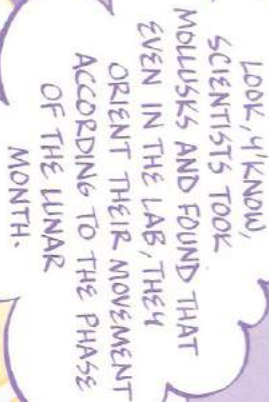 LOOK, Y'KNOW,
SCIENTISTS TOOK
MOLLUSKS AND FOUND THAT
EVEN IN THE LAB, THEY
ORIENT THEIR MOVEMENT
ACCORDING TO THE PHASE
OF THE LUNAR
MONTH.